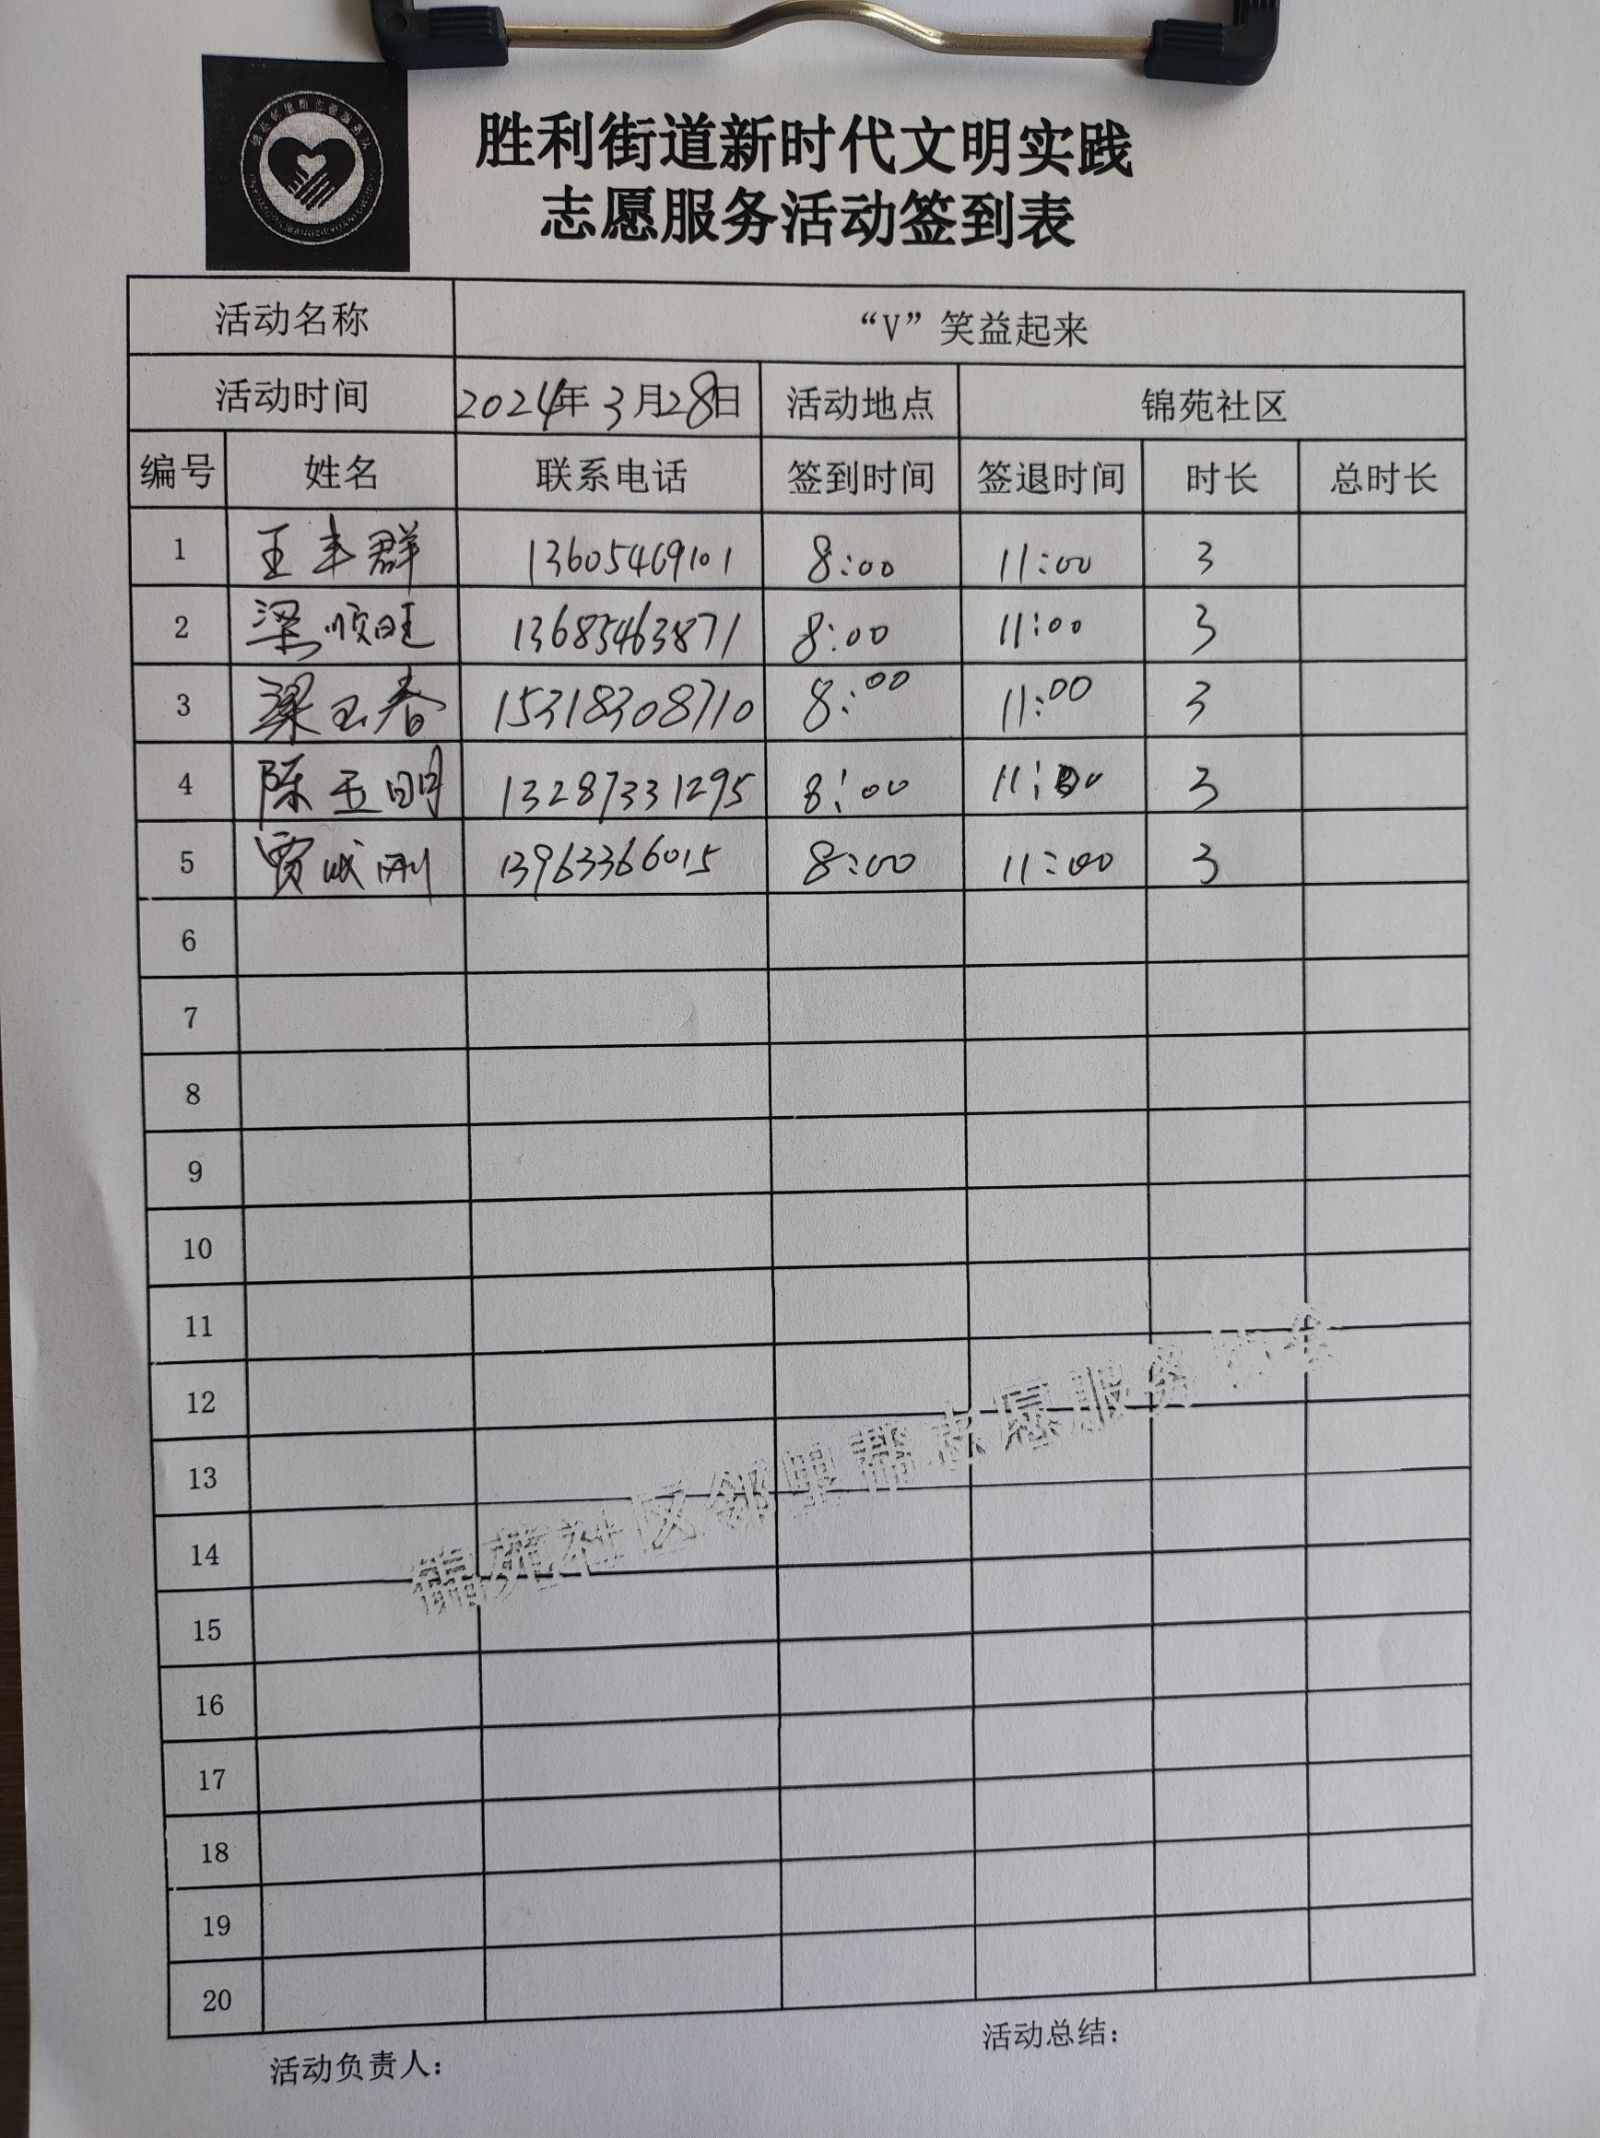 胜利街道新时代文明实践
志愿服务活动签到表
活动名称 “V”笑益起来
活动时间 2024年3月28日 活动地点 锦苑社区
编号 姓名 联系电话 签到时间 签退时间 时长 总时长
1 王丰群 13605469101 8:00 11:00 3
2 梁顺旺 13685463871 8:00 11:00 3
3 梁玉春 15318308710 8:00 11:00 3
4 陈玉明 13287331295 8:00 11:00 3
5 贾成刚 13963366015 8:00 11:00 3
6
7
8
9
10
11
12
13
14
15
16
17
18
19
20
锦苑社区邻里帮志愿服务协会
活动负责人：
活动总结：